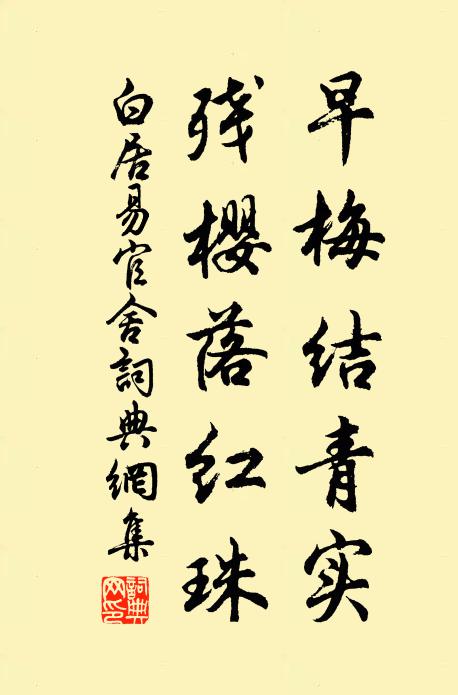 早梅结青实
残樱落红珠
白居易官舍詞典網集
詞典網印